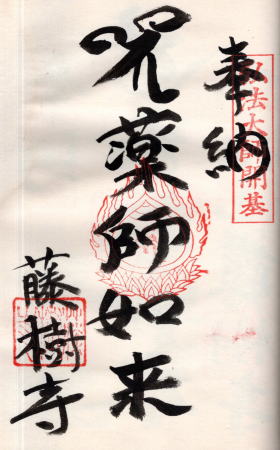 奉納
弘法大師開基
咒薬師如来
藤樹寺